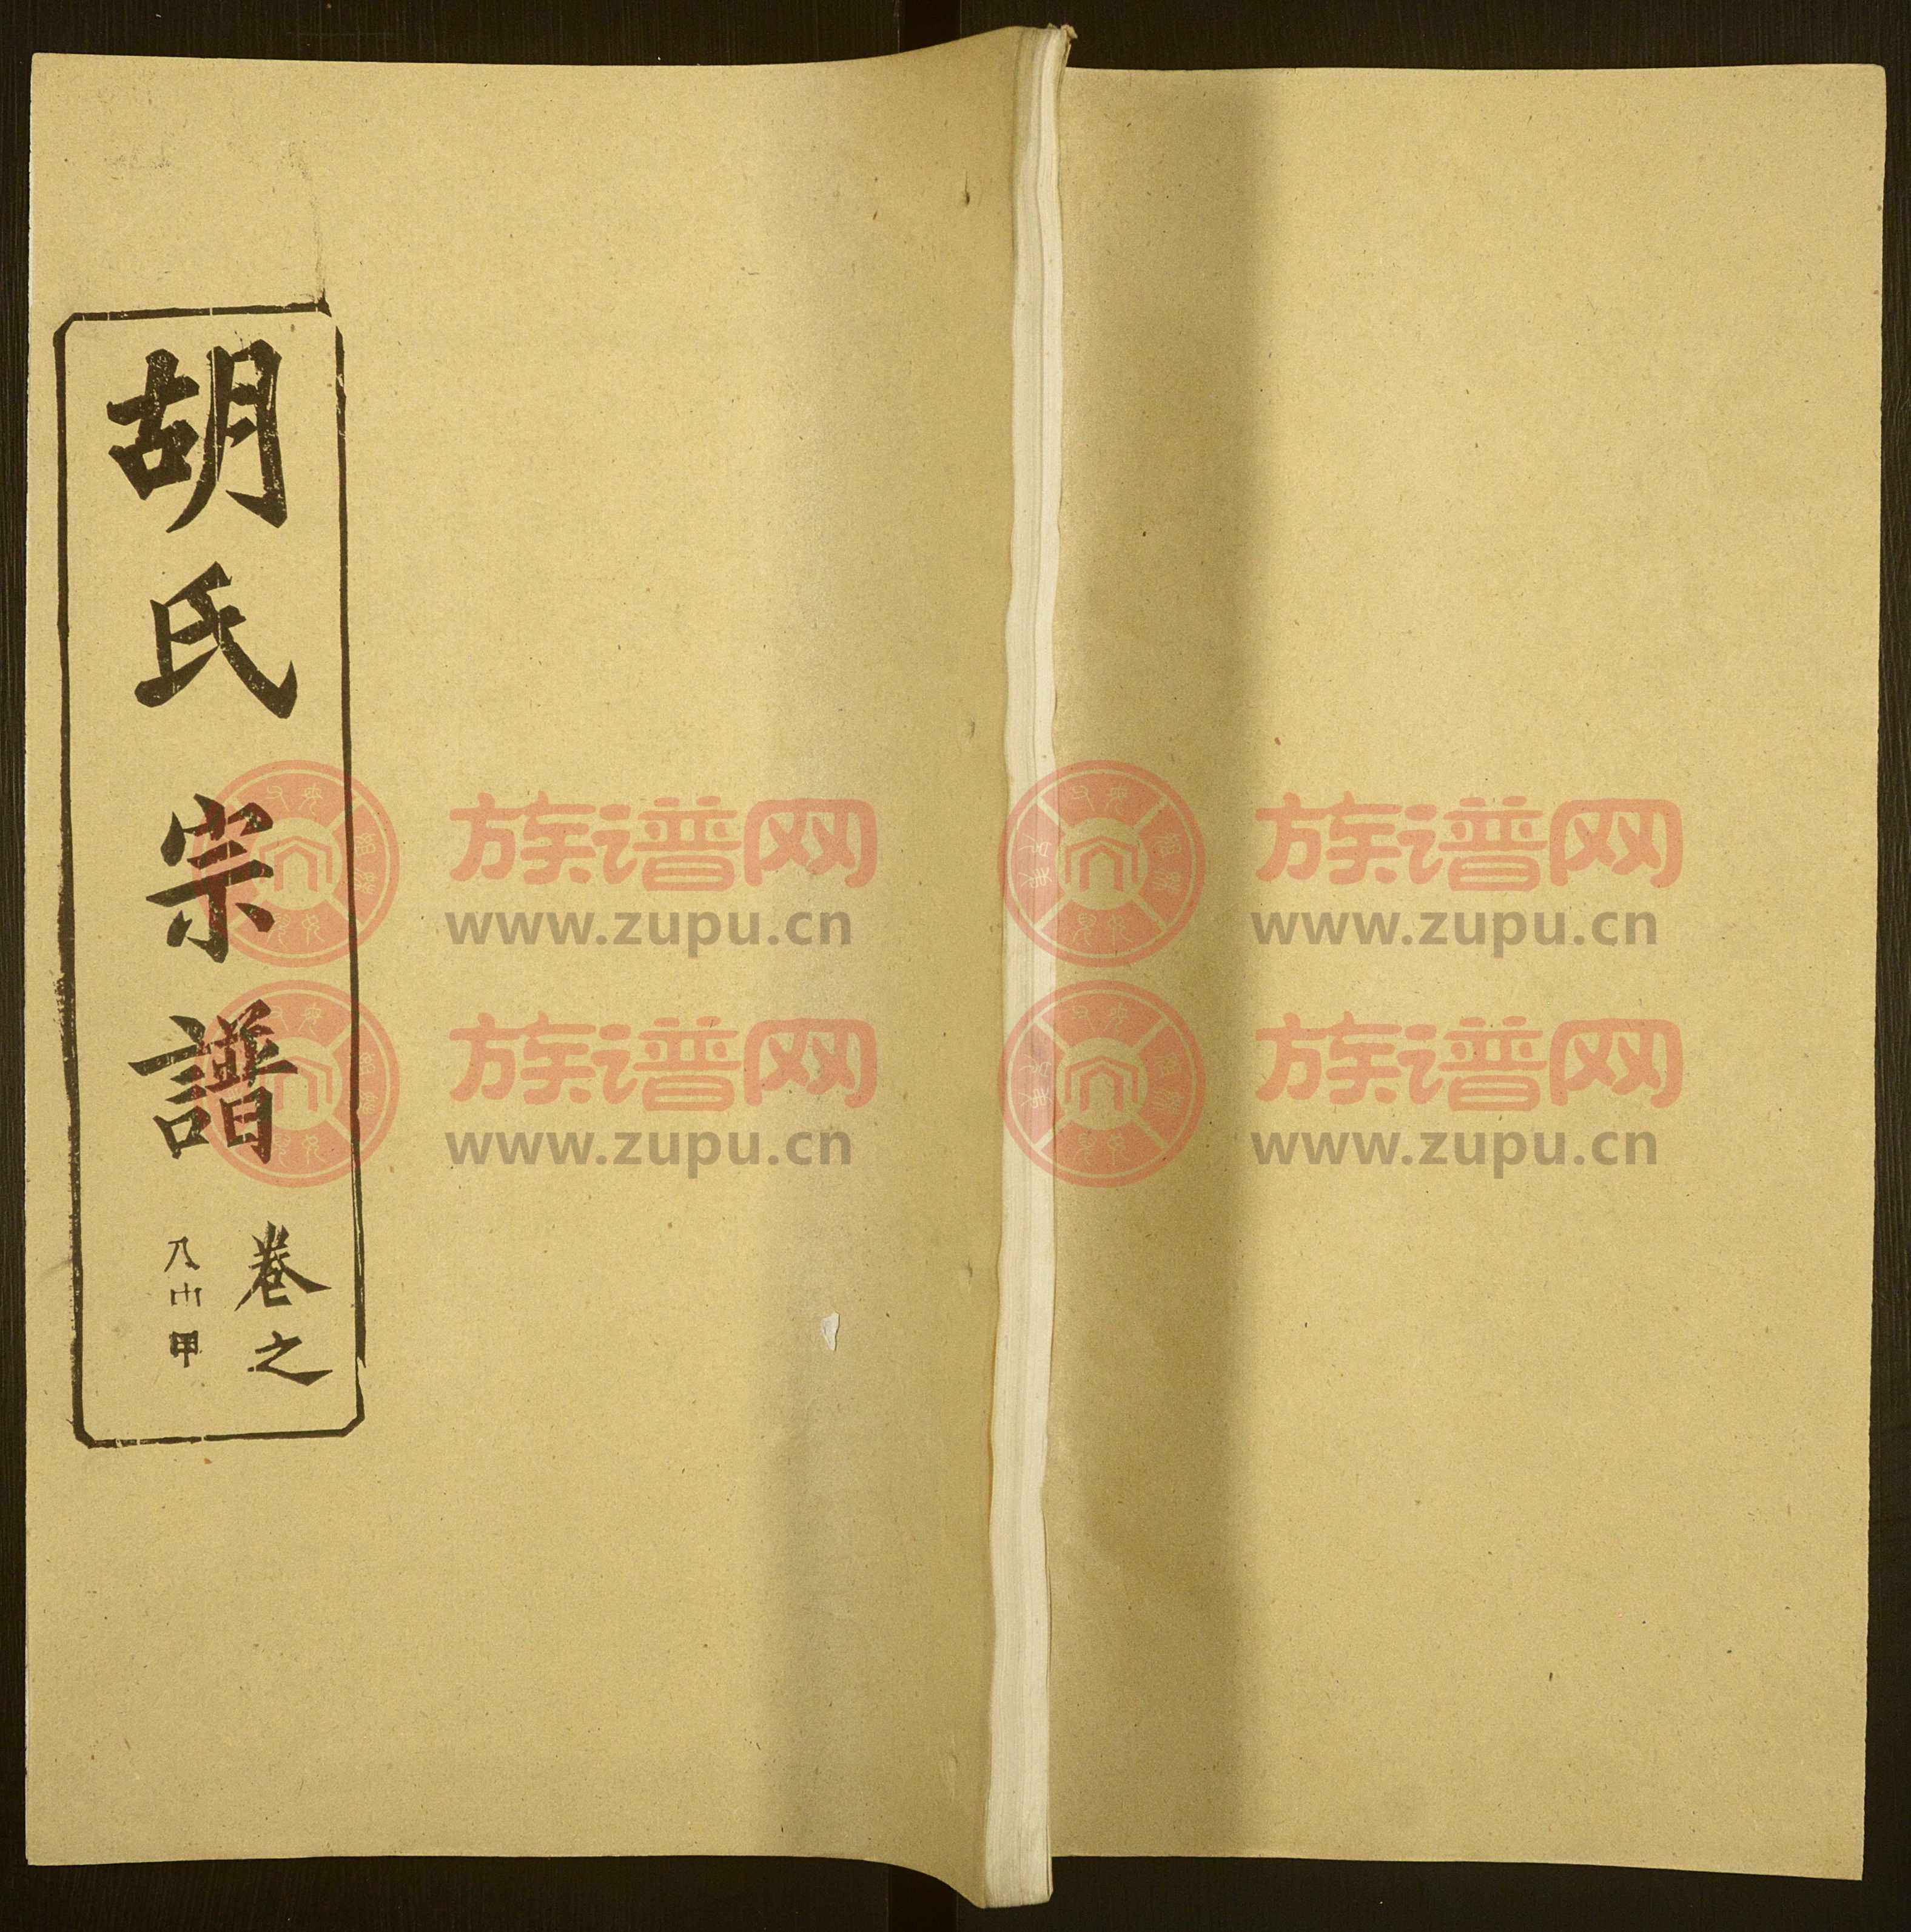 胡氏宗譜
卷之
八十甲
族谱网
www.zupu.cn
族谱网
www.zupu.cn
族谱网
www.zupu.cn
族谱网
www.zupu.cn